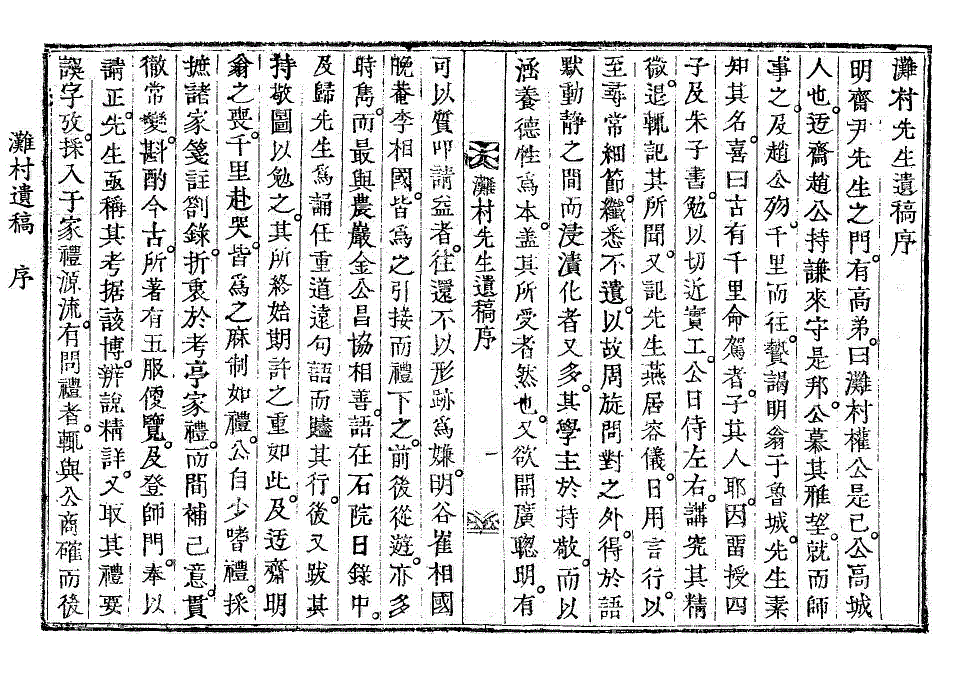 灘村先生遺稿序
明齋尹先生之門。有高弟。曰灘村權公是已。公高城
人也。迃齋趙公持謙來守是邦。公慕其雅望。就而師
事之。及趙公歿。千里而往。贄謁明翁于魯城。先生素
知其名。喜曰古有千里命駕者。子其人耶。因留授四
子及朱子書。勉以切近實工。公日侍左右。講究其精
微。退輒記其所聞。又記先生燕居容儀。日用言行。以
至尋常細節。纖悉不遺。以故周旋問對之外。得於語
默動靜之間而浸漬化者又多。其學主於持敬。而以
涵養德性爲本。盖其所受者然也。又欲開廣聰明。有
灘村先生遺稿序
一
可以質叩請益者。往還不以形跡爲嫌。明谷崔相國
晩菴李相國。皆爲之引接而禮下之。前後從遊。亦多
時雋。而最與農巖金公昌協相善。語在石院日錄中。
及歸先生爲誦任重道遠句語而贐其行。後又跋其
持敬圖以勉之。其所終始期許之重如此。及迃齋明
翁之喪。千里赴哭。皆爲之麻制如禮。公自少嗜禮。採
摭諸家箋註劄錄。折衷於考亭家禮。而間補己意。貫
徹常變。斟酌今古。所著有五服便覽。及登師門。奉以
請正。先生亟稱其考据該博。辨說精詳。又取其禮要
誤字攷。採入于家禮源流。有問禮者。輒與公商確而後
灘村遺稿 序